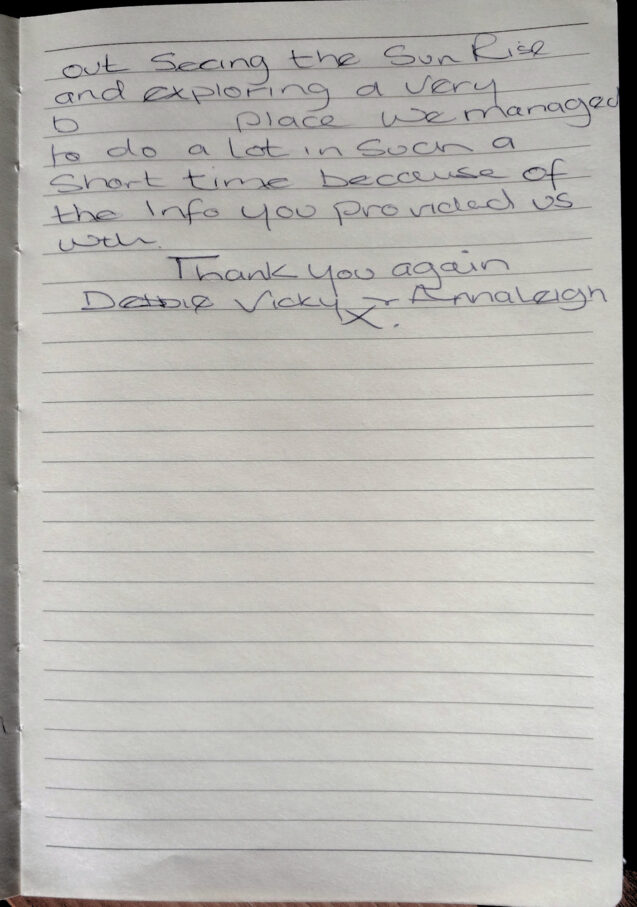 out Seeing the Sun Rise
and exploring a very
b place we managed
to do a lot in such a
Short time because of
the Info you provided us
with.
Thank you again
Debbie Vicky + Annaleigh
X.